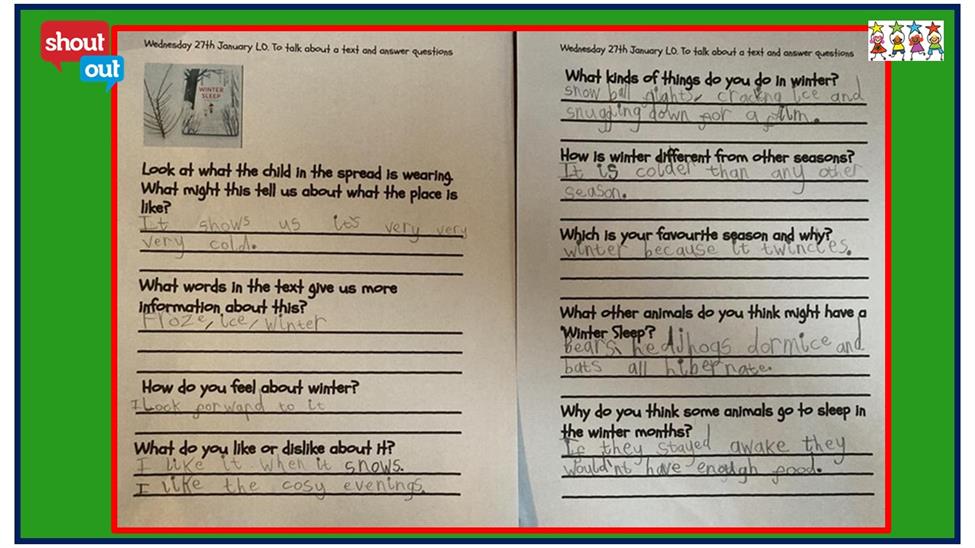 shout
out
Wednesday 27th January L.O. To talk about a text and answer questions
WINTER
SLEEP
Look at what the child in the spread is wearing.
What might this tell us about what the place is
like?
It shows us it's very very
very cold.
What words in the text give us more
information about this?
Froze, ice, winter
How do you feel about winter?
I Look forward to it
What do you like or dislike about it?
I like it when it snows.
I like the cosy evenings.
Wednesday 27th January L.O. To talk about a text and answer questions
What kinds of things do you do in winter?
snow ball fights, cracking ice and
snuggling down for a film.
How is winter different from other seasons?
It is colder than any other
season.
Which is your favourite season and why?
winter because it twincles.
What other animals do you think might have a
'Winter Sleep'?
bears, hedjhogs dormice and
bats all hibernate.
Why do you think some animals go to sleep in
the winter months?
If they stayed awake they
would'nt have enough food.